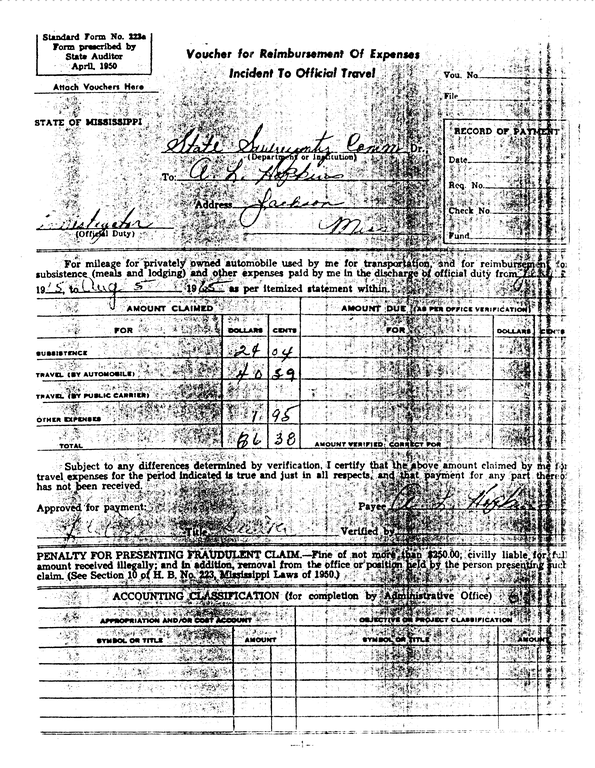 Standard Form No. 223a
Form prescribed by
State Auditor
April, 1950
Attach Vouchers Here
Voucher for Reimbursement Of Expenses
Incident To Official Travel
Vou. No.
File
STATE OF MISSISSIPPI
RECORD OF PAYMENT
Date
Req. No.
Check No.
Fund
State Sovereignty Comm Dr.
(Department or Institution)
To: A. L. Hopkins
Address Jackson
Miss
investigator
(Official Duty)
For mileage for privately owned automobile used by me for transportation, and for reimbursement for
subsistence (meals and lodging) and other expenses paid by me in the discharge of official duty from
to Aug 5 1965 as per itemized statement within.
AMOUNT CLAIMED
AMOUNT DUE (AS PER OFFICE VERIFICATION)
FOR DOLLARS CENTS FOR DOLLARS CENTS
SUBSISTENCE 24 04
TRAVEL (BY AUTOMOBILE) 40 39
TRAVEL (BY PUBLIC CARRIER)
OTHER EXPENSES 1 95
TOTAL 66 38 AMOUNT VERIFIED; CORRECT FOR
Subject to any differences determined by verification, I certify that the above amount claimed by me for
travel expenses for the period indicated is true and just in all respects, and that payment for any part thereo
has not been received.
Approved for payment: Payee A. L. Hopkins
Title Verified by
PENALTY FOR PRESENTING FRAUDULENT CLAIM.—Fine of not more than $250.00; civilly liable for full
amount received illegally; and in addition, removal from the office or position held by the person presenting such
claim. (See Section 10 of H. B. No. 223, Mississippi Laws of 1950.)
ACCOUNTING CLASSIFICATION (for completion by Administrative Office)
APPROPRIATION AND/OR COST ACCOUNT OBJECTIVE OR PROJECT CLASSIFICATION
SYMBOL OR TITLE AMOUNT SYMBOL OR TITLE AMOUNT